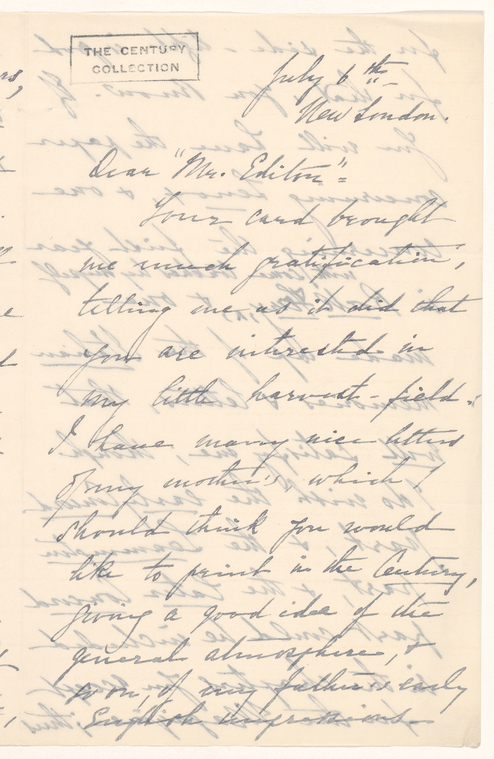 THE CENTURY
COLLECTION
July 6th
New London.
Dear "Mr. Editor"=
Your card brought
me much gratification,
telling me as it did that
you are interested in
my little harvest-field.
I have many nice letters
of my mother's which I
should think you would
like to print in the Century,
giving a good idea of the
general atmosphere, &
soon, of my father's early
English impressions.